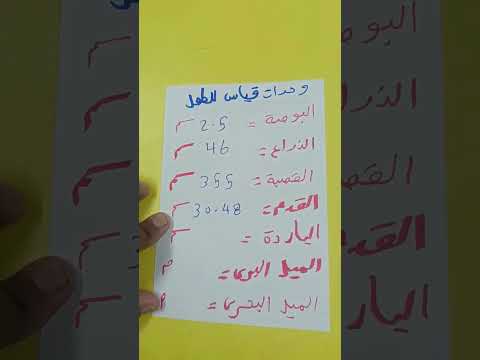 وحدات قياس للطول
البوصة = 2.5 سم
الذراع = 46 سم
القصبة = 355 سم
القدم = 30.48 سم
الياردة = سم
الميل البرى = م
الميل البحرى = م